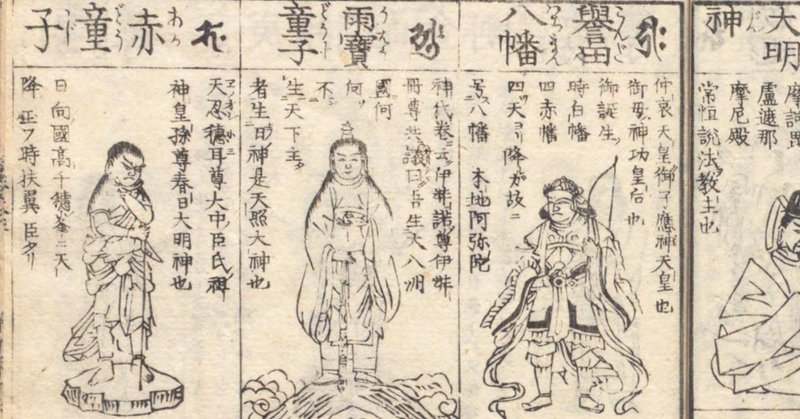 大明
神
摩訶毘
盧遮那
摩尼殿
常恒説法教主也
譽田
八幡
仲哀天皇御子應神天皇也
御母神功皇后也
御誕生
時白幡
四赤幡
四天ヨリ降ガ故ニ
号八幡 本地阿弥陀
雨寶
童子
神代巻ニ云伊弉諾尊伊弉
冊尊共議曰吾生大八洲
國何
何
不
生天下主
者生日神是天照大神也
赤童
子
天忍德耳尊大中臣氏祖
神皇孫尊春日大明神也
日向國高千穗峯ニ天
降玉フ時扶翼臣タリ